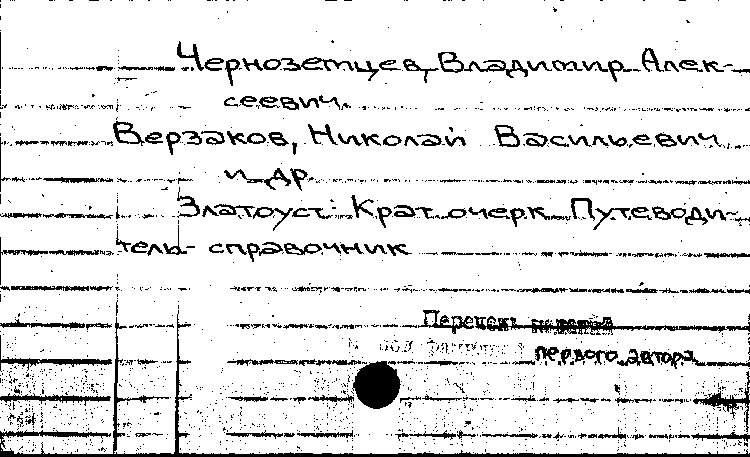 Черноземцев, Владимир Алек-
сеевич.
Верзаков, Николай Васильевич
и др.
Златоуст: Крат. очерк. Путеводи-
тель-справочник
Перечень
первого автора